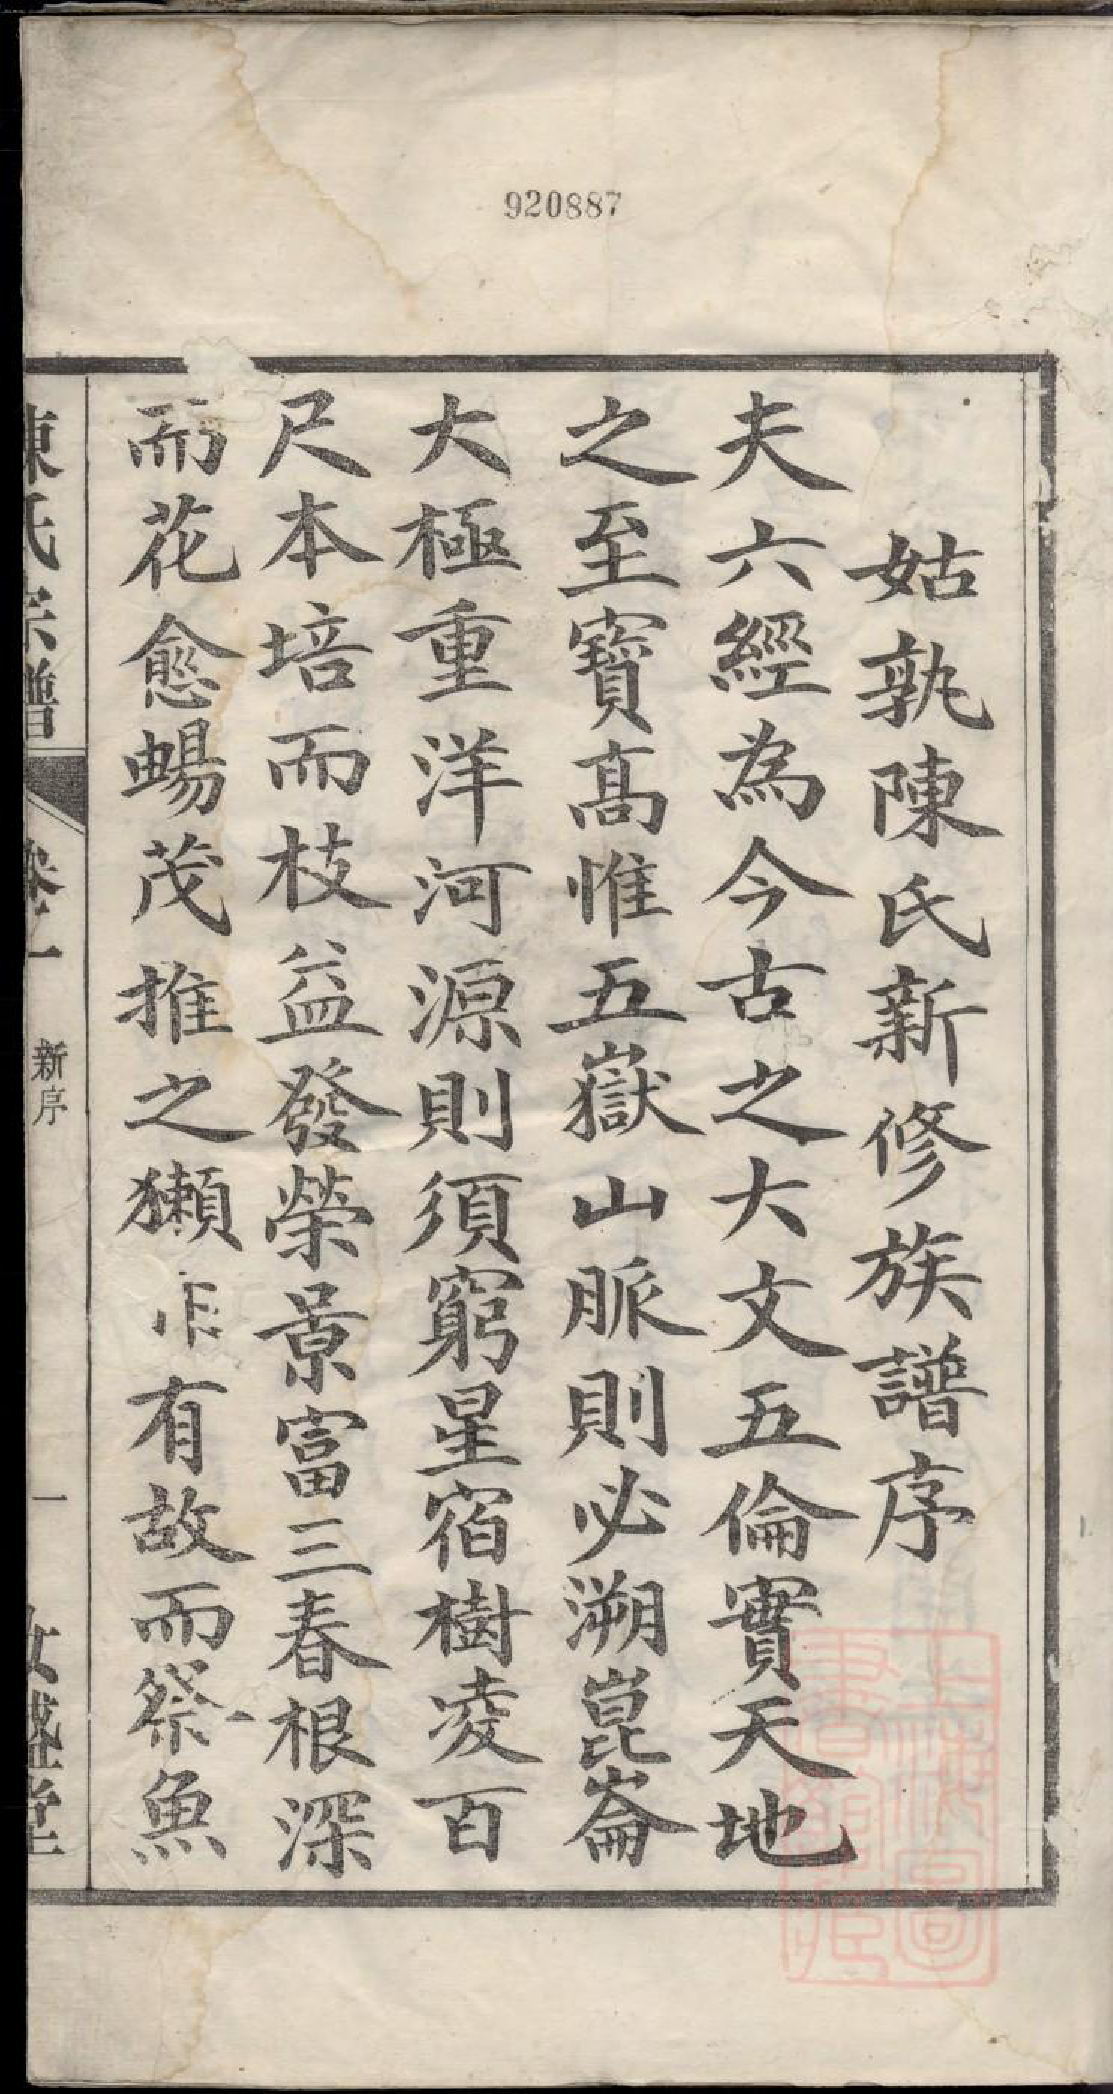 920887
姑孰陳氏新修族譜序
夫六經為今古之大文五倫實天地
之至寶髙惟五嶽山脈則必溯崑崙
大極重洋河源則須窮星宿樹凌百
尺本培而枝益發榮景富三春根深
而花愈暢茂推之獺有故而祭魚
陳氏宗譜
卷一
新序
一
盛堂
上海圖書館藏